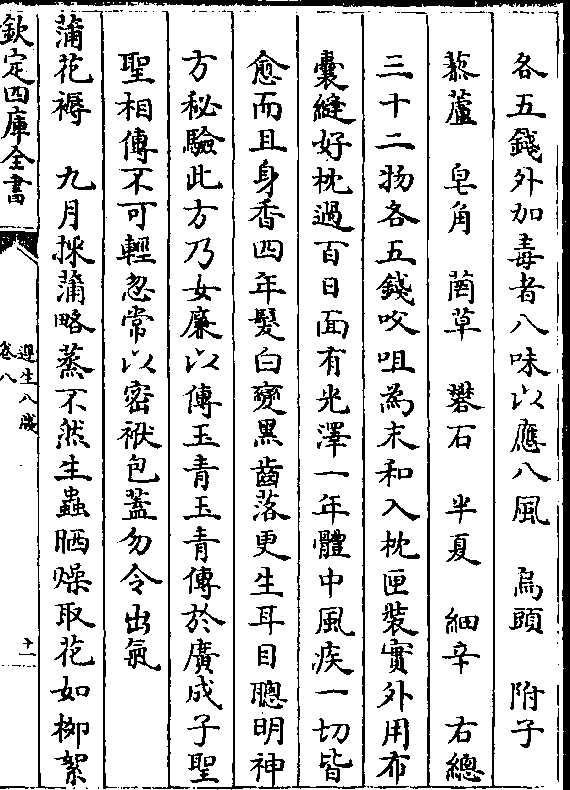 各五錢外加毒者八味以應八風　烏頭　附子
藜蘆　皂角　䓖草　礬石　半夏　細辛　右總
三十二物各五錢㕮咀為末和入枕匣裝實外用布
囊縫好枕過百日面有光澤一年體中風疾一切皆
愈而且身香四年髮白變黑齒落更生耳目聰明神
方秘驗此方乃女廉以傳玉青玉青傳於廣成子聖
聖相傳不可輕忽常以密袱包蓋勿令出氣
蒲花褥　九月採蒲略蒸不然生蟲晒燥取花如柳絮
欽定四庫全書
遵生八牋
卷八
十一